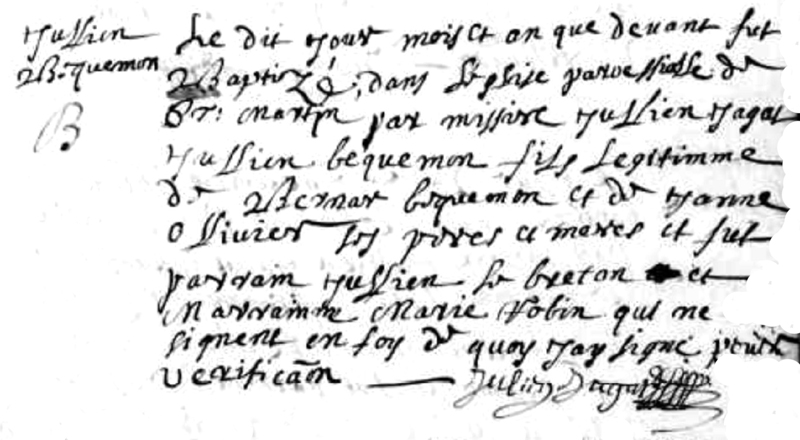 Jullien
Bequemon
B
Le dit jour mois et an que devant fut
Baptizé, dans l'eglise paroessialle de
St: Martin par missire Jullien Jagat
Jullien bequemon fils legitimme
de Bernar bequemon et de Janne
Ollivier ses peres et meres et fut
parrain Jullien le breton et
Marrainne Marie Robin qui ne
signent en foy de quoy j'ay signé pour
verification Julien